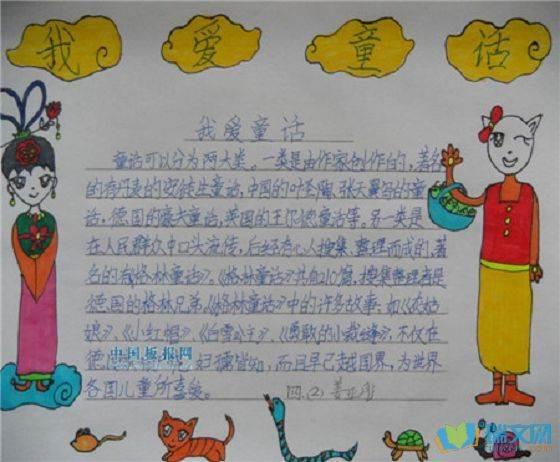 我爱童话
我爱童话
童话可以分为两大类。一类是由作家创作的,著名
的有丹麦的安徒生童话,中国的叶圣陶、张天翼写的童
话,德国的豪夫童话,英国的王尔德童话等。另一类是
在人民群众中口头流传,后经有心人搜集、整理而成的,著
名的有《格林童话》。《格林童话》共有210篇,搜集整理者是
德国的格林兄弟。《格林童话》中的许多故事,如《灰姑
娘》、《小红帽》、《白雪公主》、《勇敢的小裁缝》,不仅在
德国 妇孺皆知,而且早已越国界,为世界
各国儿童所喜爱。 四.(2)
中国板报网